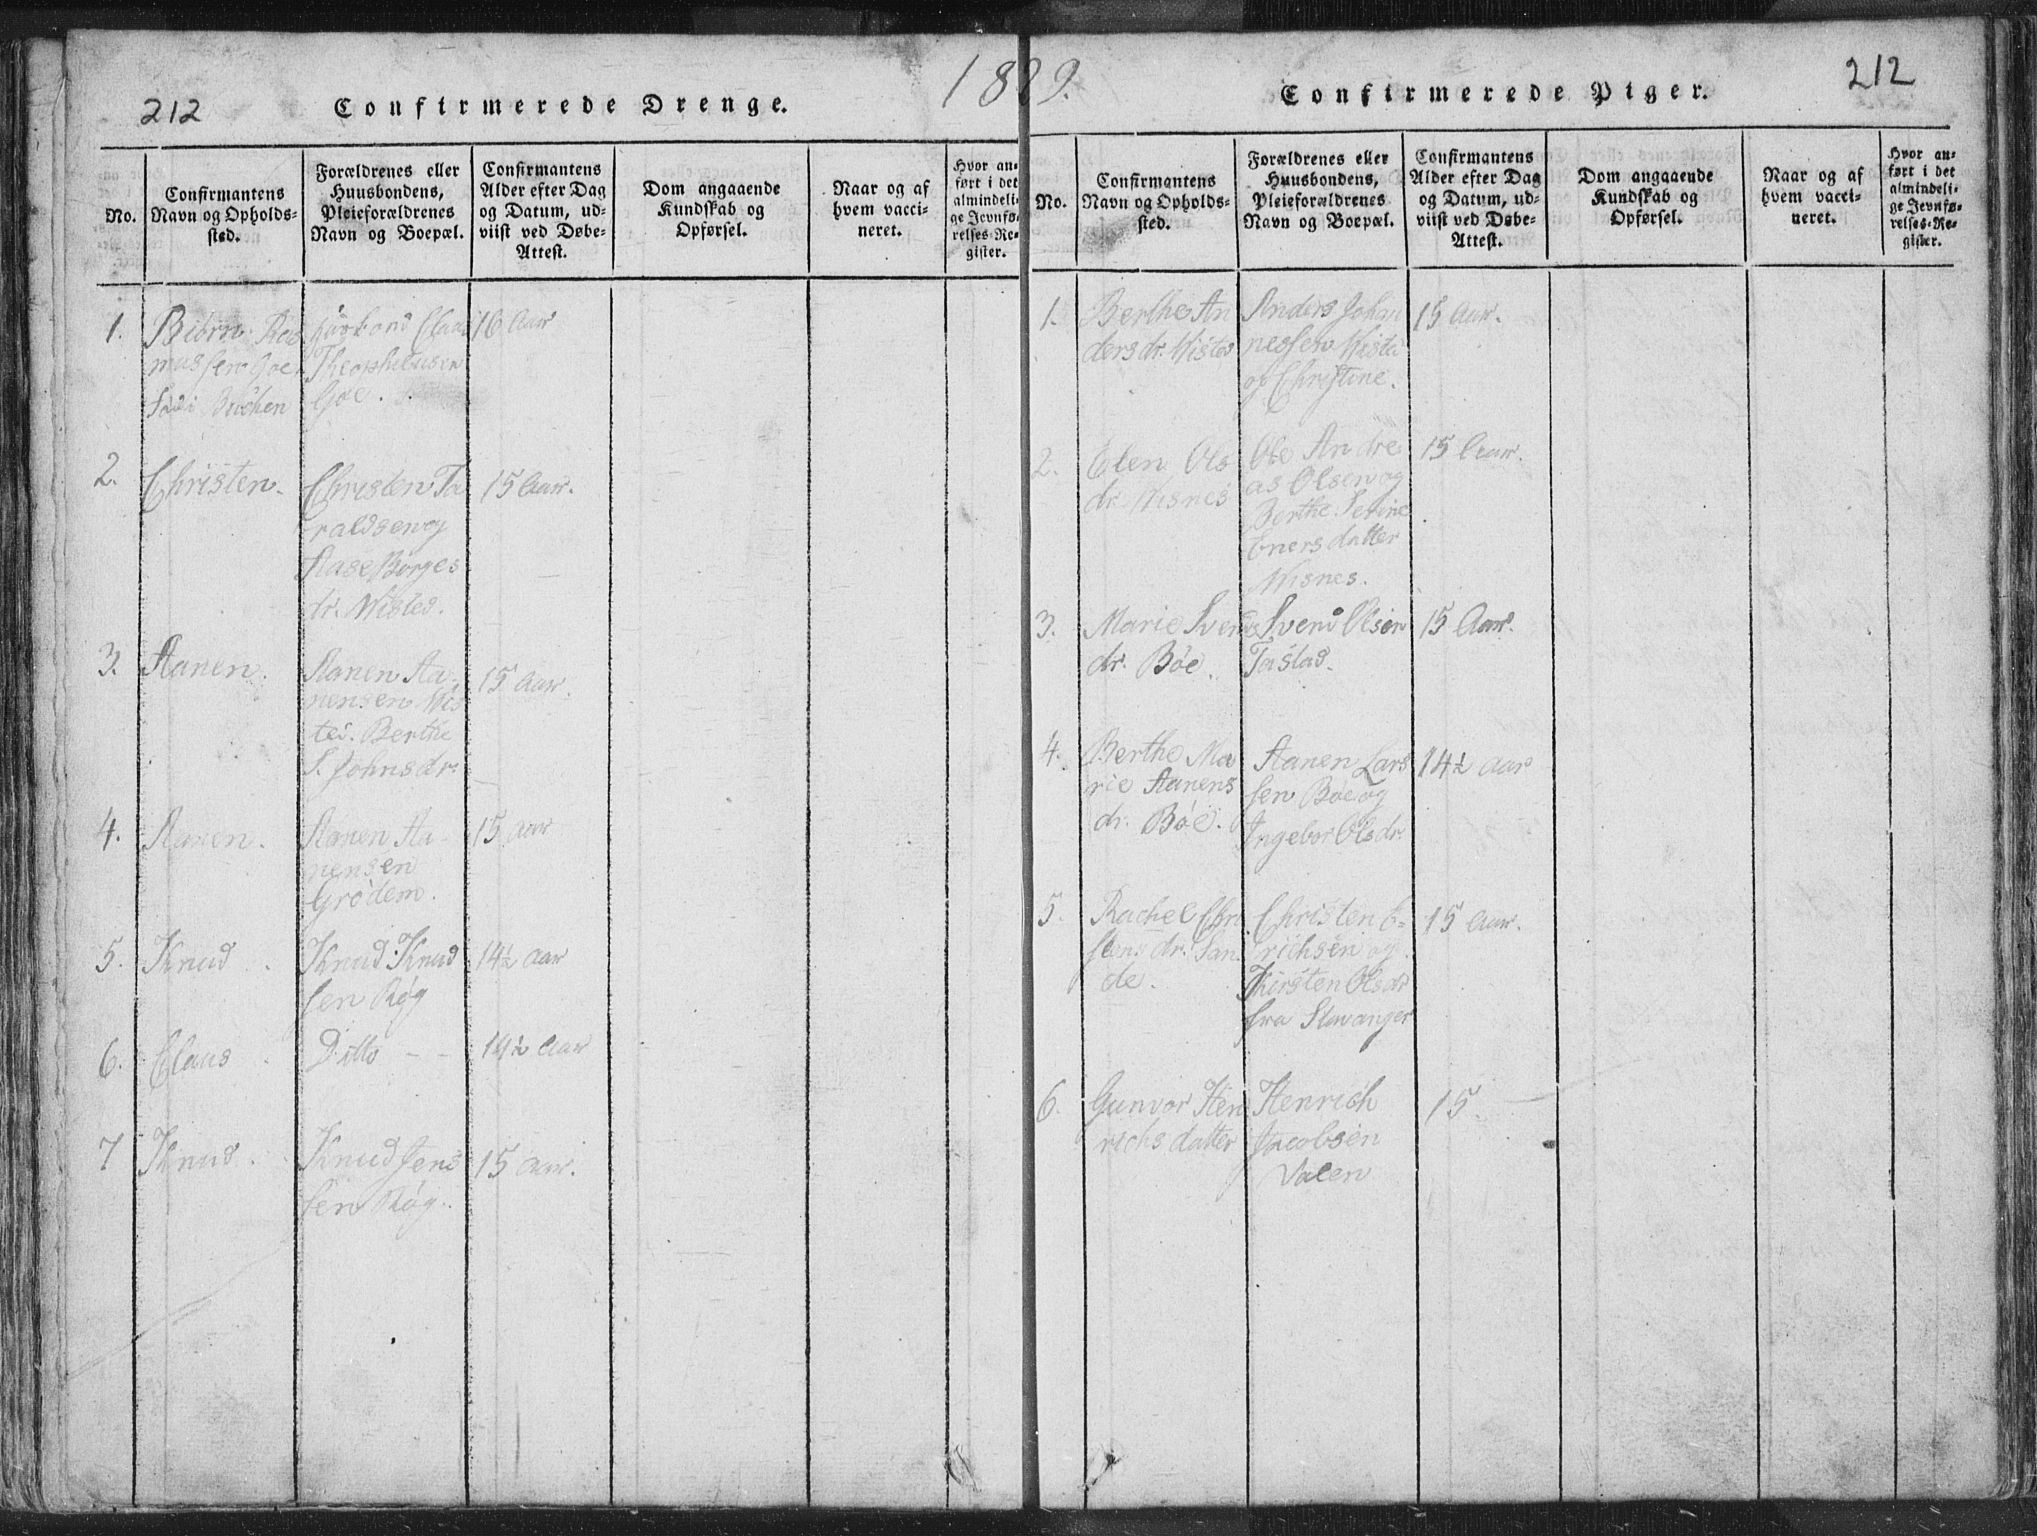 212
Confirmerede Drenge.
1829.
No.
Confirmantens
Navn og Opholds-
sted.
Forældrenes eller
Huusbondens,
Pleieforældrenes
Navn og Boepæl.
Confirmantens
Alder efter Dag
og Datum, ud-
viist ved Døbe-
Attest.
Dom angaaende
Kundskab og
Opførsel.
Naar og af
hvem vacci-
neret.
Hvor an-
ført i det
almindeli-
ge Jevnfø-
relses-Re-
gister.
1.
Biörn Ras
mussen Goe
Huusbond Claus
Theophilusen
Goe.
16 Aar
2.
Christen.
Christen Ta
raldsen og
Aase Börges
dr. Wisted.
15 Aar.
3.
Aanen.
Aanen Aa-
nensen Wis
ted. Berthe
S. Johnsdr.
15 Aar.
4.
Aanen.
Aanen Aa-
nensen
Grödem.
15 Aar
5.
Knud
Knud Knud
sen Røg
14½ Aar
6.
Claus
Ditto - -
14½ Aar
7
Knud.
Knud Jens
sen Røg.
15 Aar.
Confirmerede Piger.
212
No.
Confirmantens
Navn og Opholds-
sted.
Forældrenes eller
Huusbondens,
Pleieforældrenes
Navn og Boepæl.
Confirmantens
Alder efter Dag
og Datum, ud-
viist ved Døbe-
Attest.
Dom angaaende
Kundskab og
Opførsel.
Naar og af
hvem vacci-
neret.
Hvor an-
ført i det
almindeli-
ge Jevnfø-
relses-Re-
gister.
1.
Berthe An
dersdr. Wisted
Anders Johan
nessen Wisted
og Christine.
15 Aar.
2.
Elen Ols
dr. Wisnes
Ole Andre
as Olsen og
Berthe Serine
Enersdatter
Wisnes.
15 Aar.
3.
Marie Svends
dr. Böe.
Svend Olsen
Tastad.
15 Aar.
4.
Berthe Ma
rie Aanens
dr. Böe.
Aanen Lars
sen Böe og
Ingebor Olsdr.
14½ Aar
5.
Rachel Chri
sten. dr. San
de.
Christen E-
richsen og
Kirsten Olsdr
fra Stavanger
15 Aar.
6.
Gunvor Hen
richsdatter
Henrich
Jacobsen
Valen
15.